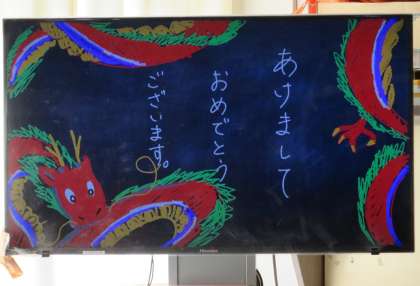 あけまして
おめでとう
ございます。
Hisense